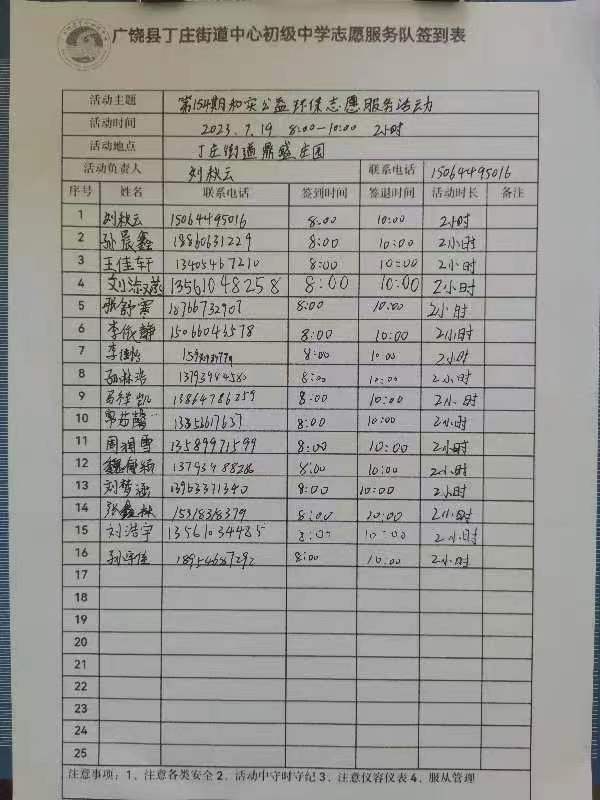 广饶县丁庄街道中心初级中学志愿服务队签到表
活动主题 第154期和实公益环保志愿服务活动
活动时间 2023.7.19 8:00-10:00 2小时
活动地点 丁庄街道鼎盛庄园
活动负责人 刘秋云 联系电话 15064495016
序号 姓名 联系电话 签到时间 签退时间 活动时长 备注
1 刘秋云 15064495016 8:00 10:00 2小时
2 孙晨鑫 18860631229 8:00 10:00 2小时
3 王佳轩 13405467210 8:00 10:00 2小时
4 13561048258 8:00 10:00 2小时
5 张舒寒 18766732907 8:00 10:00 2小时
6 15066043578 8:00 10:00 2小时
7 8:00 10:00 2小时
8 8:00 10:00 2小时
9 13864786259 8:00 10:00 2小时
10 8:00 10:00 2小时
11 周润雪 13589971599 8:00 10:00 2小时
12 8:00 10:00 2小时
13 刘梦涵 13963371340 8:00 10:00 2小时
14 张鑫林 8:00 10:00 2小时
15 刘浩宇 13561034485 8:00 10:00 2小时
16 18954687292 8:00 10:00 2小时
17
18
19
20
21
22
23
24
25
注意事项：1、注意各类安全 2、活动中守时守纪 3、注意仪容仪表 4、服从管理